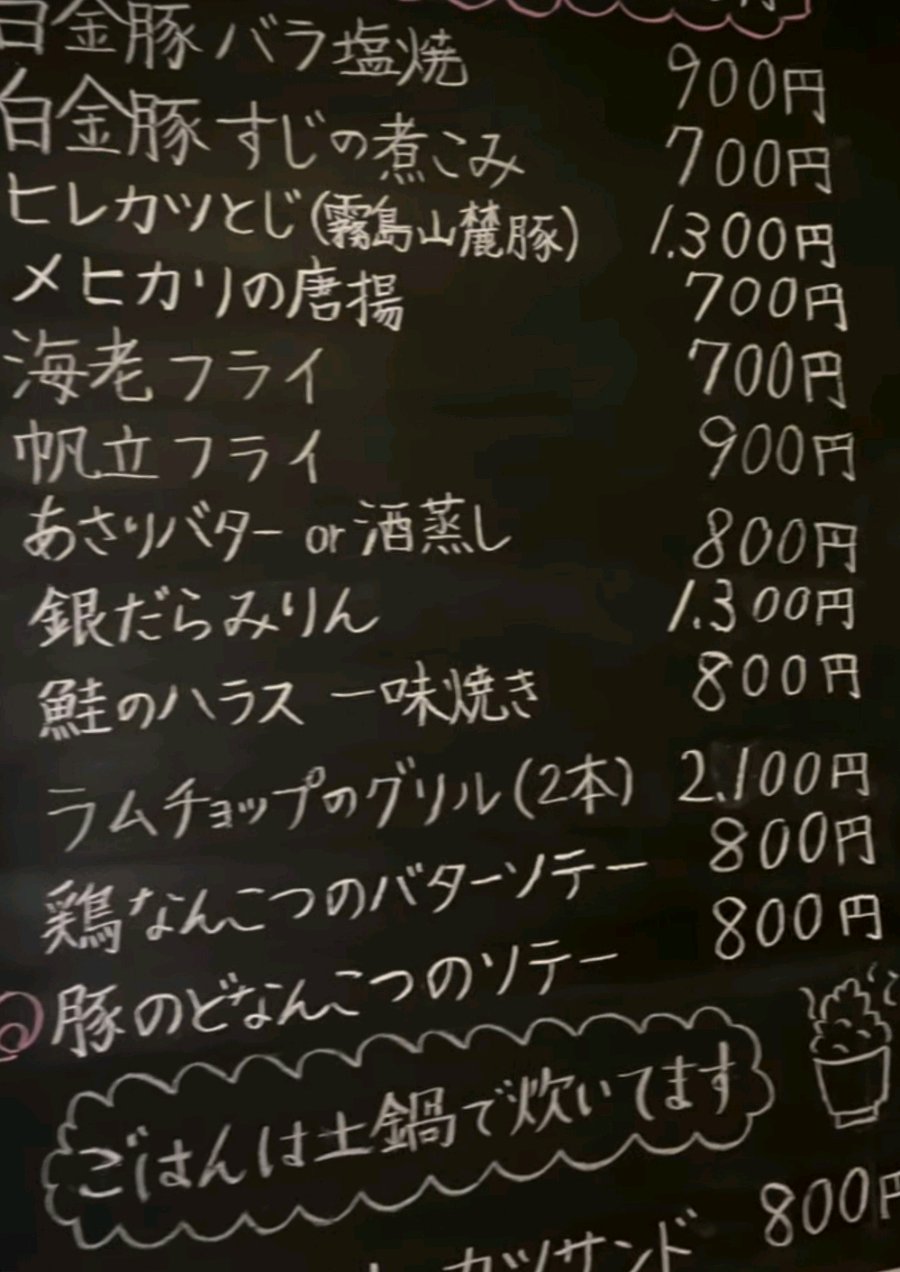 白金豚 バラ塩焼 900円
白金豚 すじの煮こみ 700円
ヒレカツとじ(霧島山麓豚) 1.300円
メヒカリの唐揚 700円
海老フライ 700円
帆立フライ 900円
あさりバター or 酒蒸し 800円
銀だらみりん 1.300円
鮭のハラス 一味焼き 800円
ラムチョップのグリル(2本) 2.100円
鶏なんこつのバターソテー 800円
豚のどなんこつのソテー 800円
ごはんは土鍋で炊いてます
カツサンド 800円